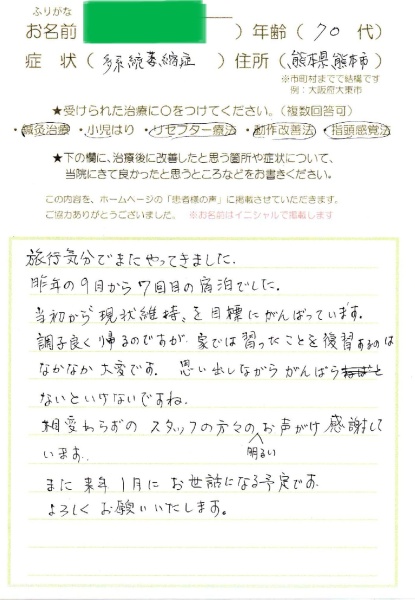 ふりがな
お名前（ ）年齢（ 70 代）
症 状（多系統萎縮症）住所（熊本県熊本市）
※市町村までで結構です
例：大阪府大東市
★受けられた治療に○をつけてください。（複数回答可）
・鍼灸治療 ・小児はり ・リセプター療法 ・動作改善法 ・指頭感覚法
★下の欄に、治療後に改善したと思う箇所や症状について、
当院にきて良かったと思うところなどをお書きください。
この内容を、ホームページの「患者様の声」に掲載させていただきます。
ご協力ありがとうございました。 ※お名前はイニシャルで掲載します
旅行気分でまたやってきました.
昨年の9月から7回目の宿泊でした.
当初から"現状維持"を目標にがんばっています.
調子良く帰るのですが、家では習ったことを復習するのは
なかなか大変です. 思い出しながらがんばら
ないといけないですね.
相変わらずの スタッフの方々の明るいお声がけ感謝して
います.
また来年1月に お世話になる予定です.
よろしくお願いいたします。